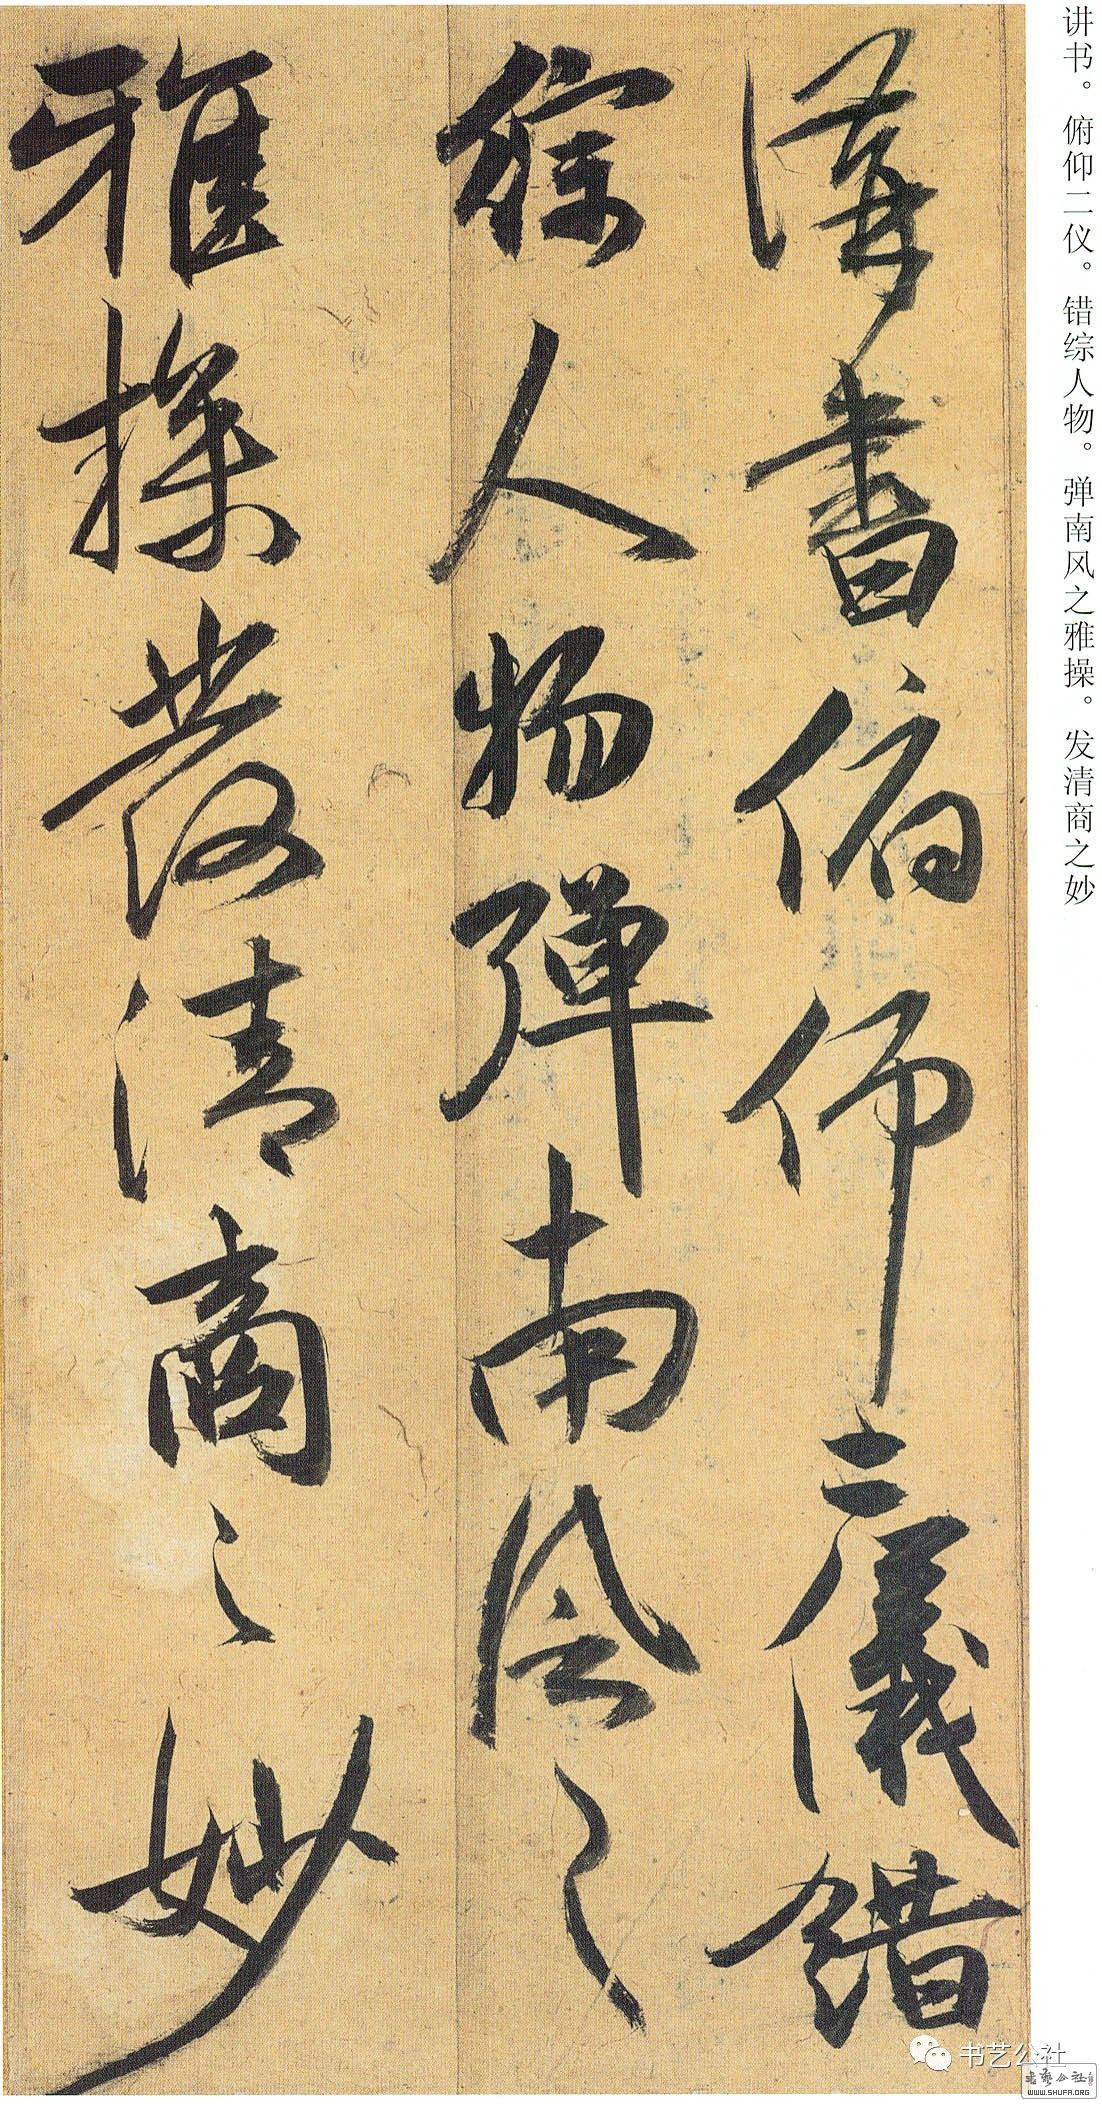 讲书。俯仰二仪。错综人物。弹南风之雅操。发清商之妙
講書俯仰二儀錯
綜人物彈南風之
雅操發清商之妙
书艺公社
书艺公社
WWW.SHUFA.ORG